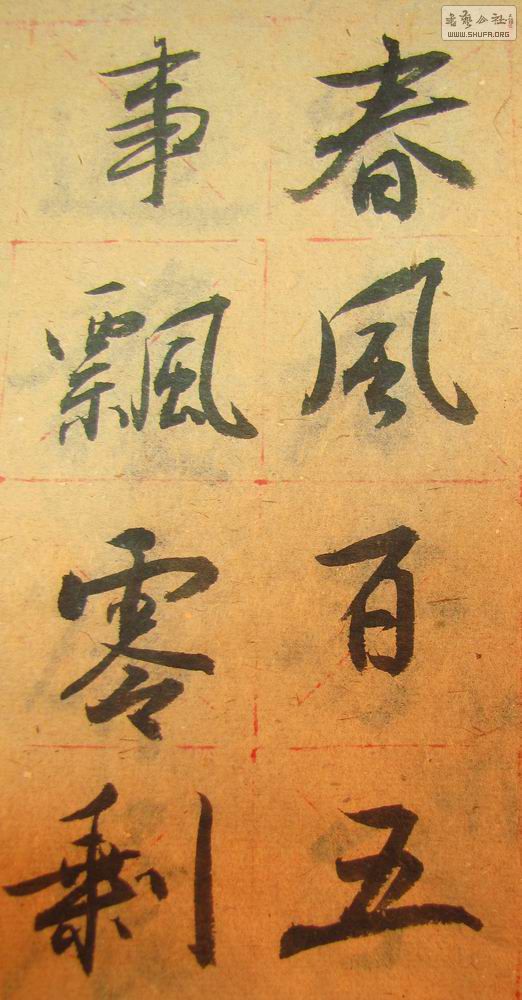 春風百五
事飄零剩
書藝公社
WWW.SHUFA.ORG